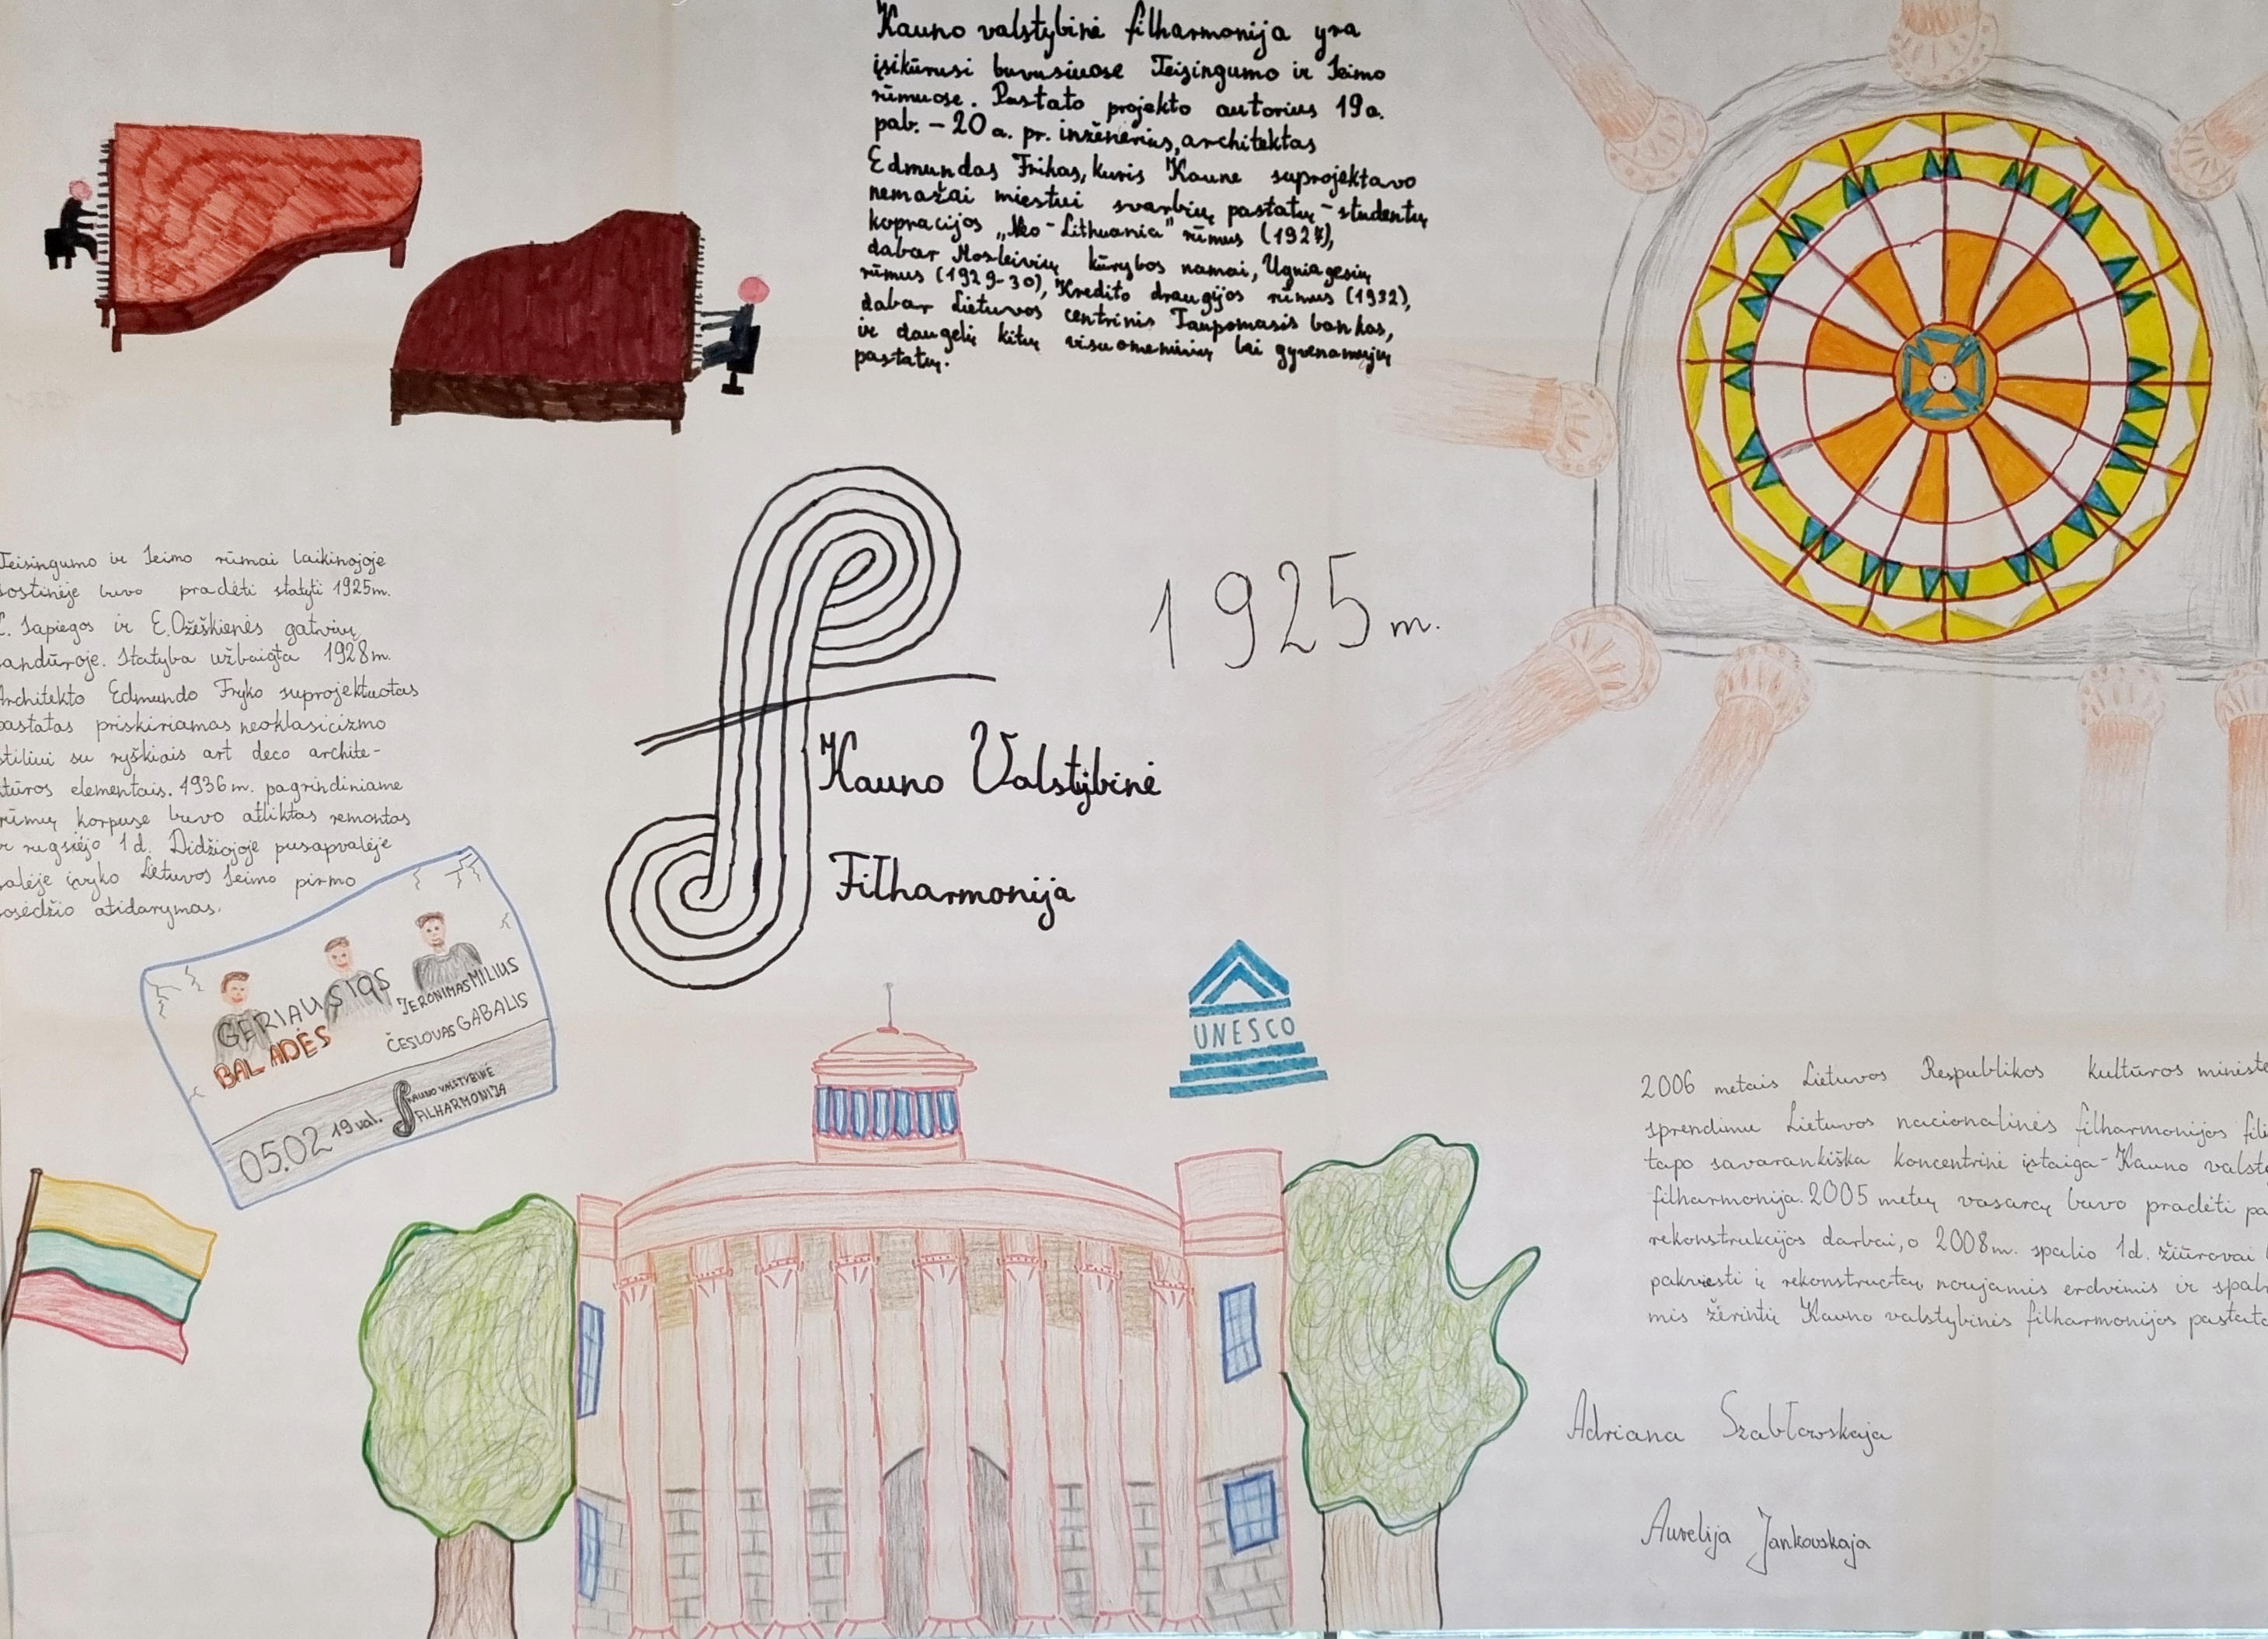 Kauno valstybinė filharmonija yra
įsikūrusi buvusiuose Teisingumo ir Seimo
rūmuose. Pastato projekto autorius 19a.
pab. – 20 a. pr. inžinerius, architektas
Edmundas Frikas, kuris Kaune suprojektavo
nemažai miestui svarbių pastatų – studentų
kopracijos „Neo-Lithuania" rūmus (1927),
dabar Mosleivių kūrybos namai, Ugniagesių
rūmus (1929-30), Kredito draugijos rūmus (1932),
dabar Lietuvos centrinis Taupomasis bankas,
ir daugelį kitų visuomeninių bei gyvenamųjų
pastatų.
Teisingumo ir Seimo rūmai laikinojoje
sostinėje buvo pradėti statyti 1925m.
L. Sapiegos ir E.Ožeškienės gatvių
sandūroje. Statyba užbaigta 1928m.
Architekto Edmundo Fryko suprojektuotas
pastatas priskiriamas neoklasicizmo
stiliui su ryškiais art deco archite-
ktūros elementais. 1936m. pagrindiniame
rūmų korpuse buvo atliktas remontas
ir rugsėjo 1d. Didžiojoje pusapvalėje
salėje įvyko Lietuvos Seimo pirmo
posėdžio atidarymas.
1925 m.
Kauno Valstybinė
Filharmonija
GERIAUSIOS
BALADĖS
JERONIMAS MILIUS
ČESLOVAS GABALIS
05.02 19 val.
KAUNO VALSTYBINĖ
FILHARMONIJA
UNESCO
2006 metais Lietuvos Respublikos kultūros ministe
sprendimu Lietuvos nacionalinės filharmonijos fili
tapo savarankiška koncentrinė įstaiga – Kauno valst
filharmonija. 2005 metų vasarą buvo pradėti pa
rekonstrukcijos darbai, o 2008m. spalio 1d. žiūrovai
pakviesti į rekonstructų naujamis erdvėmis ir spal
mis žėrintį Kauno valstybinės filharmonijos pastatą
Adriana Szabłowskaja
Aurelija Jankovskaja